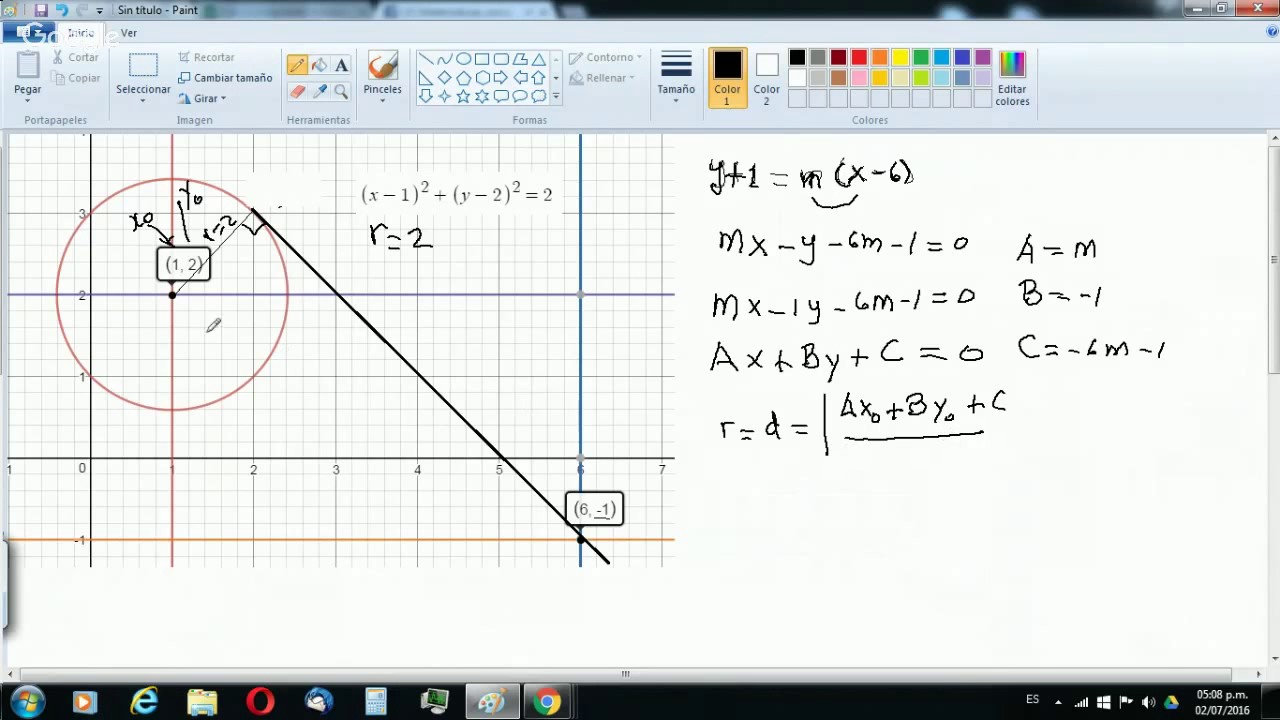 Sin título - Paint
Inicio
Ver
Pegar
Cortar
Copiar
Portapapeles
Seleccionar
Recortar
Cambiar tamaño
Girar
Imagen
A
Herramientas
Pinceles
Contorno
Rellenar
Formas
Tamaño
Color 1
Color 2
Editar colores
Colores
(x-1)² + (y-2)² = 2
r=2
x0
y0
r=2
(1, 2)
3
2
1
-1
1
0
1
2
3
4
5
6
7
(6, -1)
y+1 = m (x-6)
mx - y - 6m - 1 = 0
A = m
mx - 1y - 6m - 1 = 0
B = -1
Ax + By + C = 0
C = -6m - 1
r = d = | Ax₀ + By₀ + C
ES
05:08 p.m.
02/07/2016